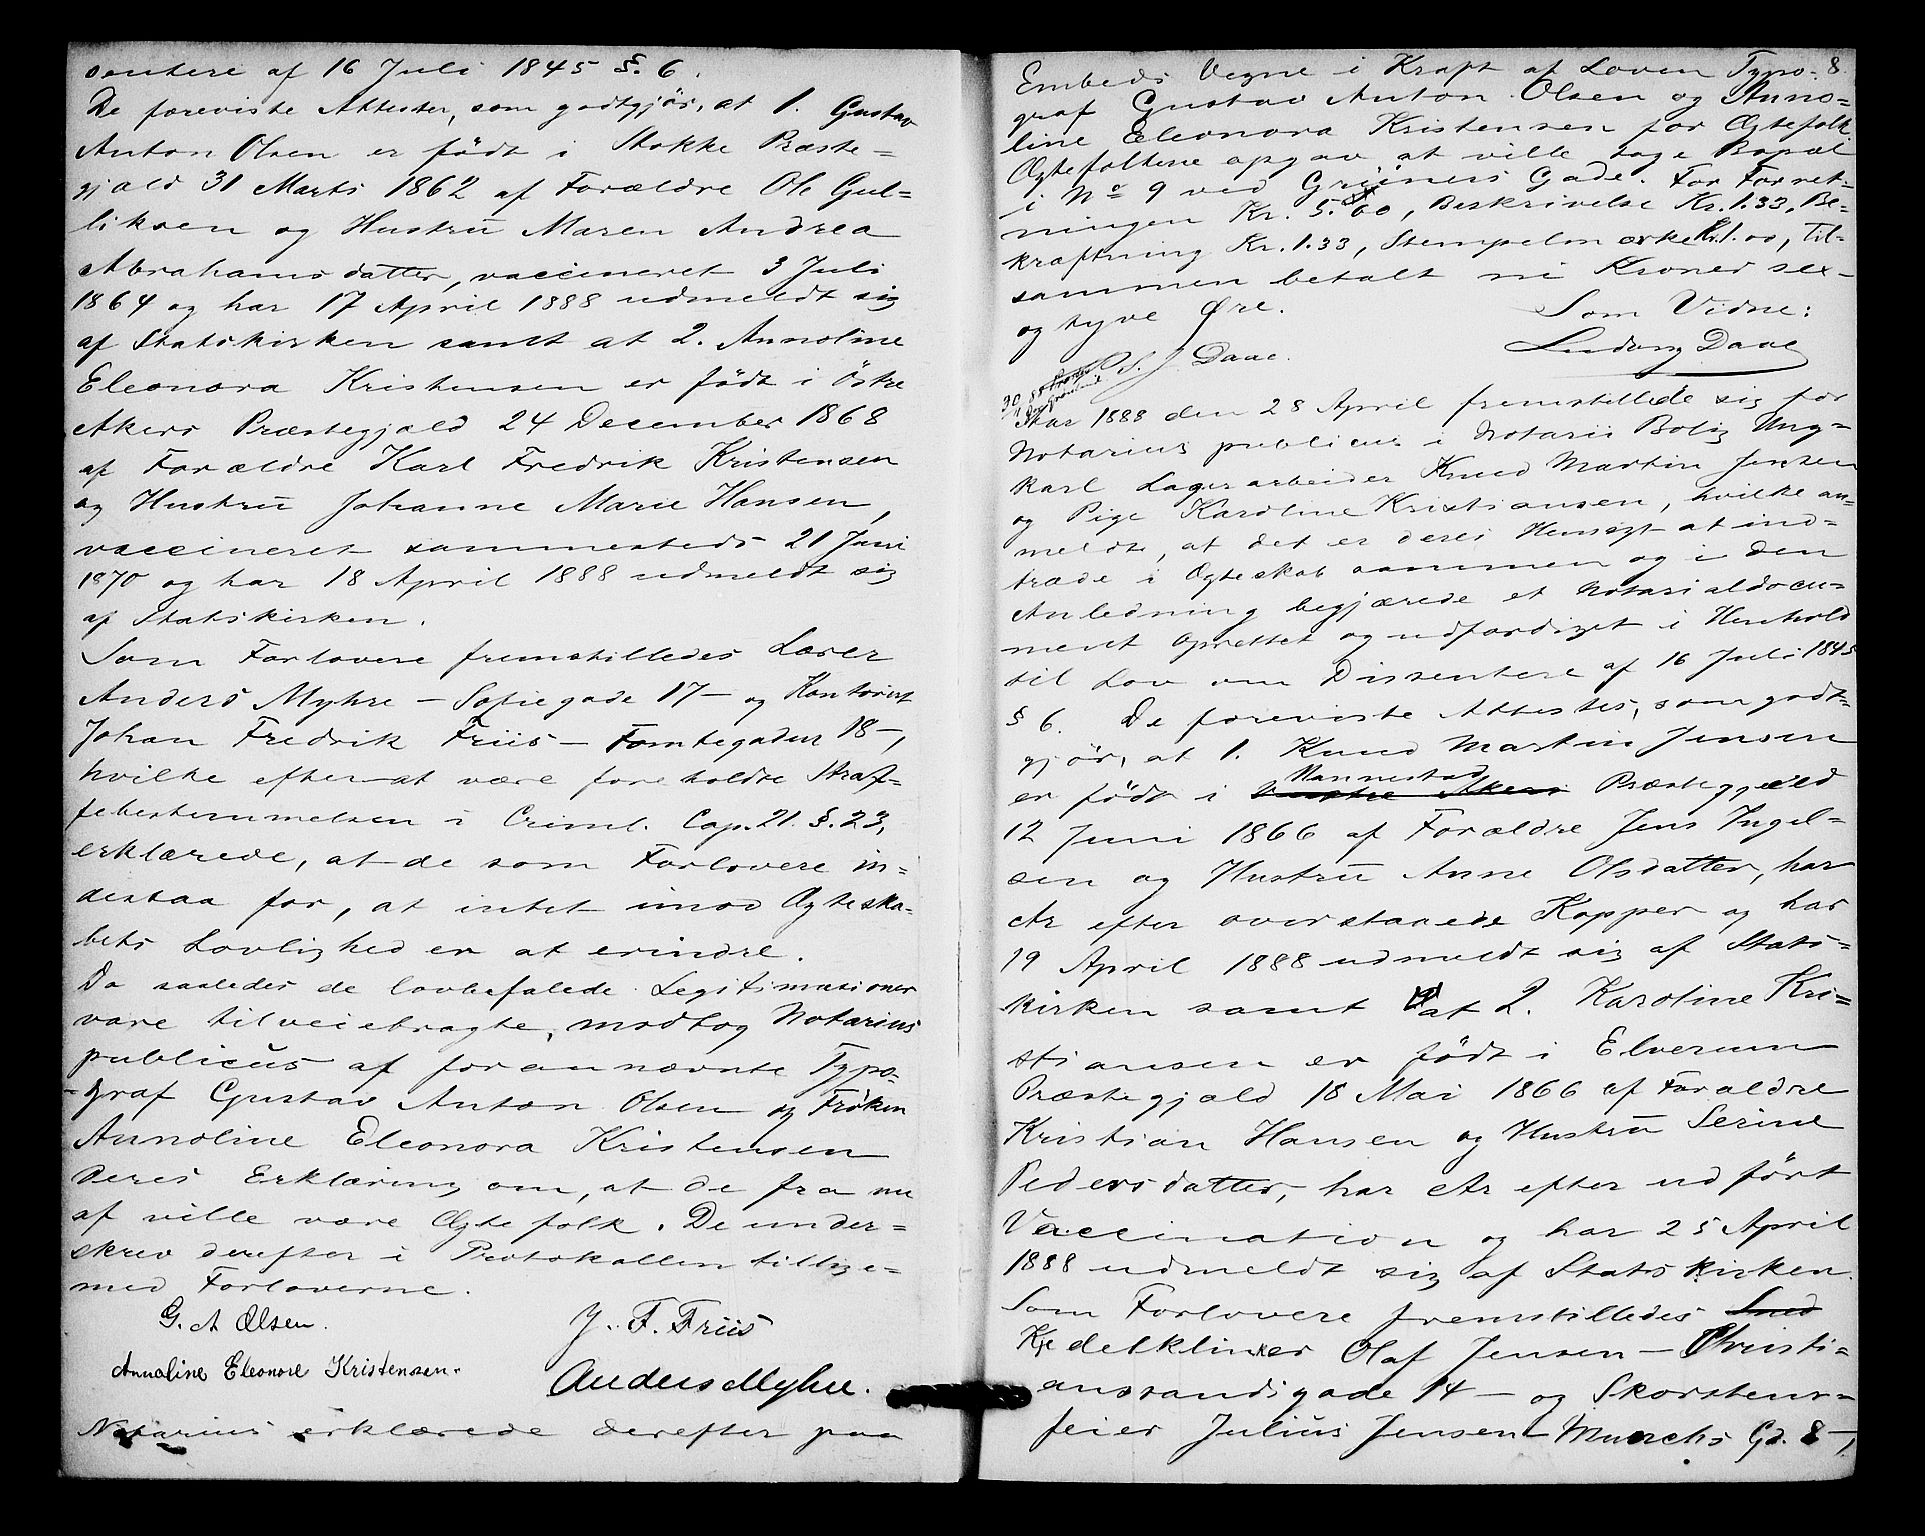 sentere af 16 Juli 1845 §. 6.
De foreviste Attester, som godtgjör, at 1. Gustav
Anton Olsen er födt i Stokke Præste-
gjæld 31 Marts 1862 af Forældre Ole Gul-
liksen og Hustru Maren Andrea
Abrahamsdatter, vaccineret 3 Juli
1864 og har 17 April 1888 udmeldt sig
af Statskirken samt at 2. Annoline
Eleonora Kristensen er födt i Östre
Akers Præstegjæld 24 December 1868
af Forældre Karl Fredrik Kristensen
og Hustru Johanne Marie Hansen,
vaccineret sammesteds 21 Juni
1870 og har 18 April 1888 udmeldt sig
af Statskirken.
Som Forlovere fremstilledes Lærer
Anders Myhre – Sofiegade 17 – og Kontorist
Johan Fredrik Friis – Tomtegaden 18 –,
hvilke efter at være foreholdte Straf-
febestemmelsen i Criml. Cap. 21. §. 23,
erklærede, at de som Forlovere in-
destaa for, at intet imod Ægteska-
bets Lovlighed er at erindre.
Da saaledes de lovbefalede Legitimationer
vare tilveiebragte, modtog Notarius
publicus af forannævnte Typo-
graf Gustav Anton Olsen og Fröken
Annoline Eleonora Kristensen
deres Erklæring om, at de fra nu
af ville være Ægtefolk. De under-
skrev derefter i Protokollen tillige-
med Forloverne.
G. A Olsen. J. F. Friis
Annaline Eleonore Kristensen. Anders Myhre.
Notarius erklærede derefter paa
8
Embeds Vegne i Kraft af Loven Typo-
graf Gustav Anton Olsen og Anno-
line Eleonora Kristensen for Ægtefolk
Ægtefolkene opgav at ville tage Bopæl
i No 9 ved Grüners Gade. For Forret-
ningen Kr. 5.60, Beskrivelse Kr. 1.33, Be-
kræftning Kr. 1.33, Stempelmærke Kr. 1.00, til-
sammen betalt ni Kroner sex-
og tyve Öre. Som Vidne:
Daae. Ludvig Daae
30/4 88
Aar 1888 den 28 April fremstillede sig for
Notarius publicus i Notarii Bolig Ung-
karl Lagerarbeider Knud Martin Jensen
og Pige Karoline Kristiansen, hvilke an-
meldte, at det er deres Hensigt at ind-
træde i Ægteskab sammen og i den
Anledning begjærede et Notarialdocu-
ment oprettet og udfærdiget i Henhold
til Lov om Dissentere af 16 Juli 1845
§ 6. De foreviste Attester, som godt-
gjör, at 1. Knud Martin Jensen
er födt i Vestre Akers Nannestad Præstegjæld
12 Juni 1866 af Forældre Jens Ingel-
sen og Hustru Anne Olsdatter, har
Ar efter overstaaede Kopper og har
19 April 1888 udmeldt sig af Stats-
kirken samt at 2. Karoline Kri-
stiansen er födt i Elverum
Præstegjæld 18 Mai 1866 af Forældre
Kristian Hansen og Hustru Serine
Pedersdatter, har Ar efter udfört
Vaccination og har 25 April
1888 udmeldt sig af Statskirken.
Som Forlovere fremstilledes Smed
Kjedelklinker Olaf Jensen – Christi-
ansandsgade 14 – og Skorstens-
feier Julius Jensen – Munchs Gd. 8 –,